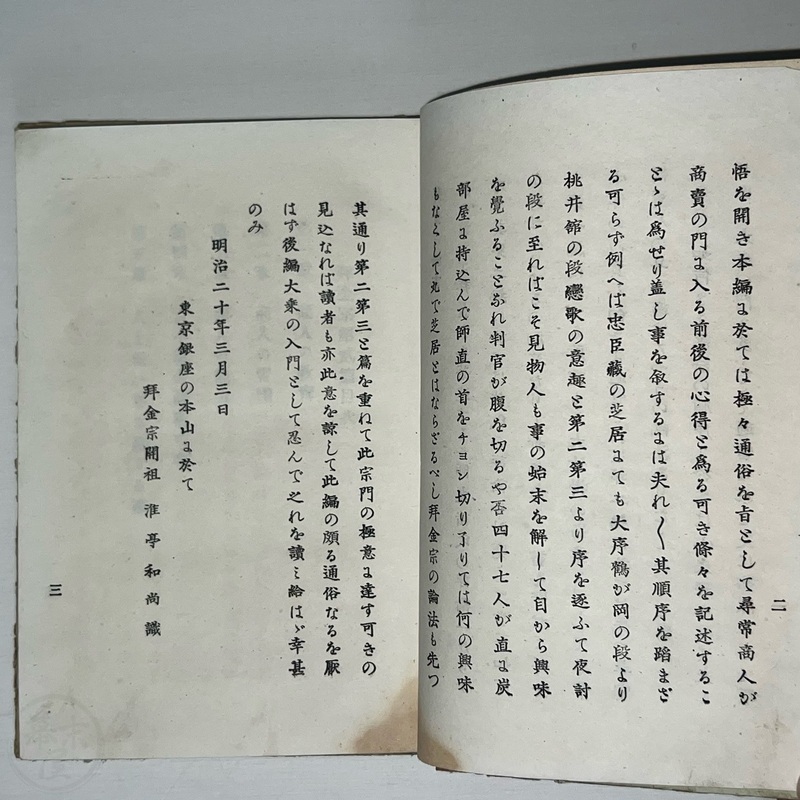 悟を開き本編に於ては極々通俗を旨として尋常商人が
商賣の門に入る前後の心得と爲る可き條々を記述するこ
とゝは爲せり盖し事を叙するには夫れ〱其順序を踏まざ
る可らず例へば忠臣藏の芝居にても大序鶴が岡の段より
桃井館の段戀歌の意趣と第二第三より序を逐ふて夜討
の段に至ればこそ見物人も事の始末を解して自から興味
を覺ふることなれ判官が腹を切るや否四十七人が直に炭
部屋に持込んで師直の首をチョン切り了りては何の興味
もなくして丸で芝居とはならざるべし拜金宗の論法も先つ
二
其通り第二第三と篇を重ねて此宗門の極意に達す可きの
見込なれば讀者も亦此意を諒して此編の頗る通俗なるを厭
はず後編大乘の入門として忍んで之れを讀み給はゞ幸甚
のみ
明治二十年三月三日
東京銀座の本山に於て
拜金宗開祖 淮亭和尚識
三